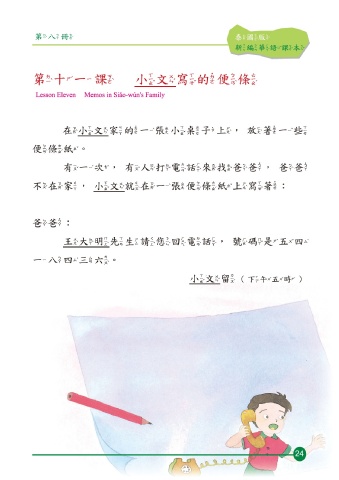 第八冊
泰國版
新編華語課本
第十一課 小文寫的便條
Lesson Eleven Memos in Siǎo-wún's Family
在小文家的一張小桌子上，放著一些
便條紙。
有一次，有人打電話來找爸爸，爸爸
不在家，小文就在一張便條紙上寫著：
爸爸：
王大明先生請您回電話，號碼是五四
一八四三六。
小文留（下午五時）
24